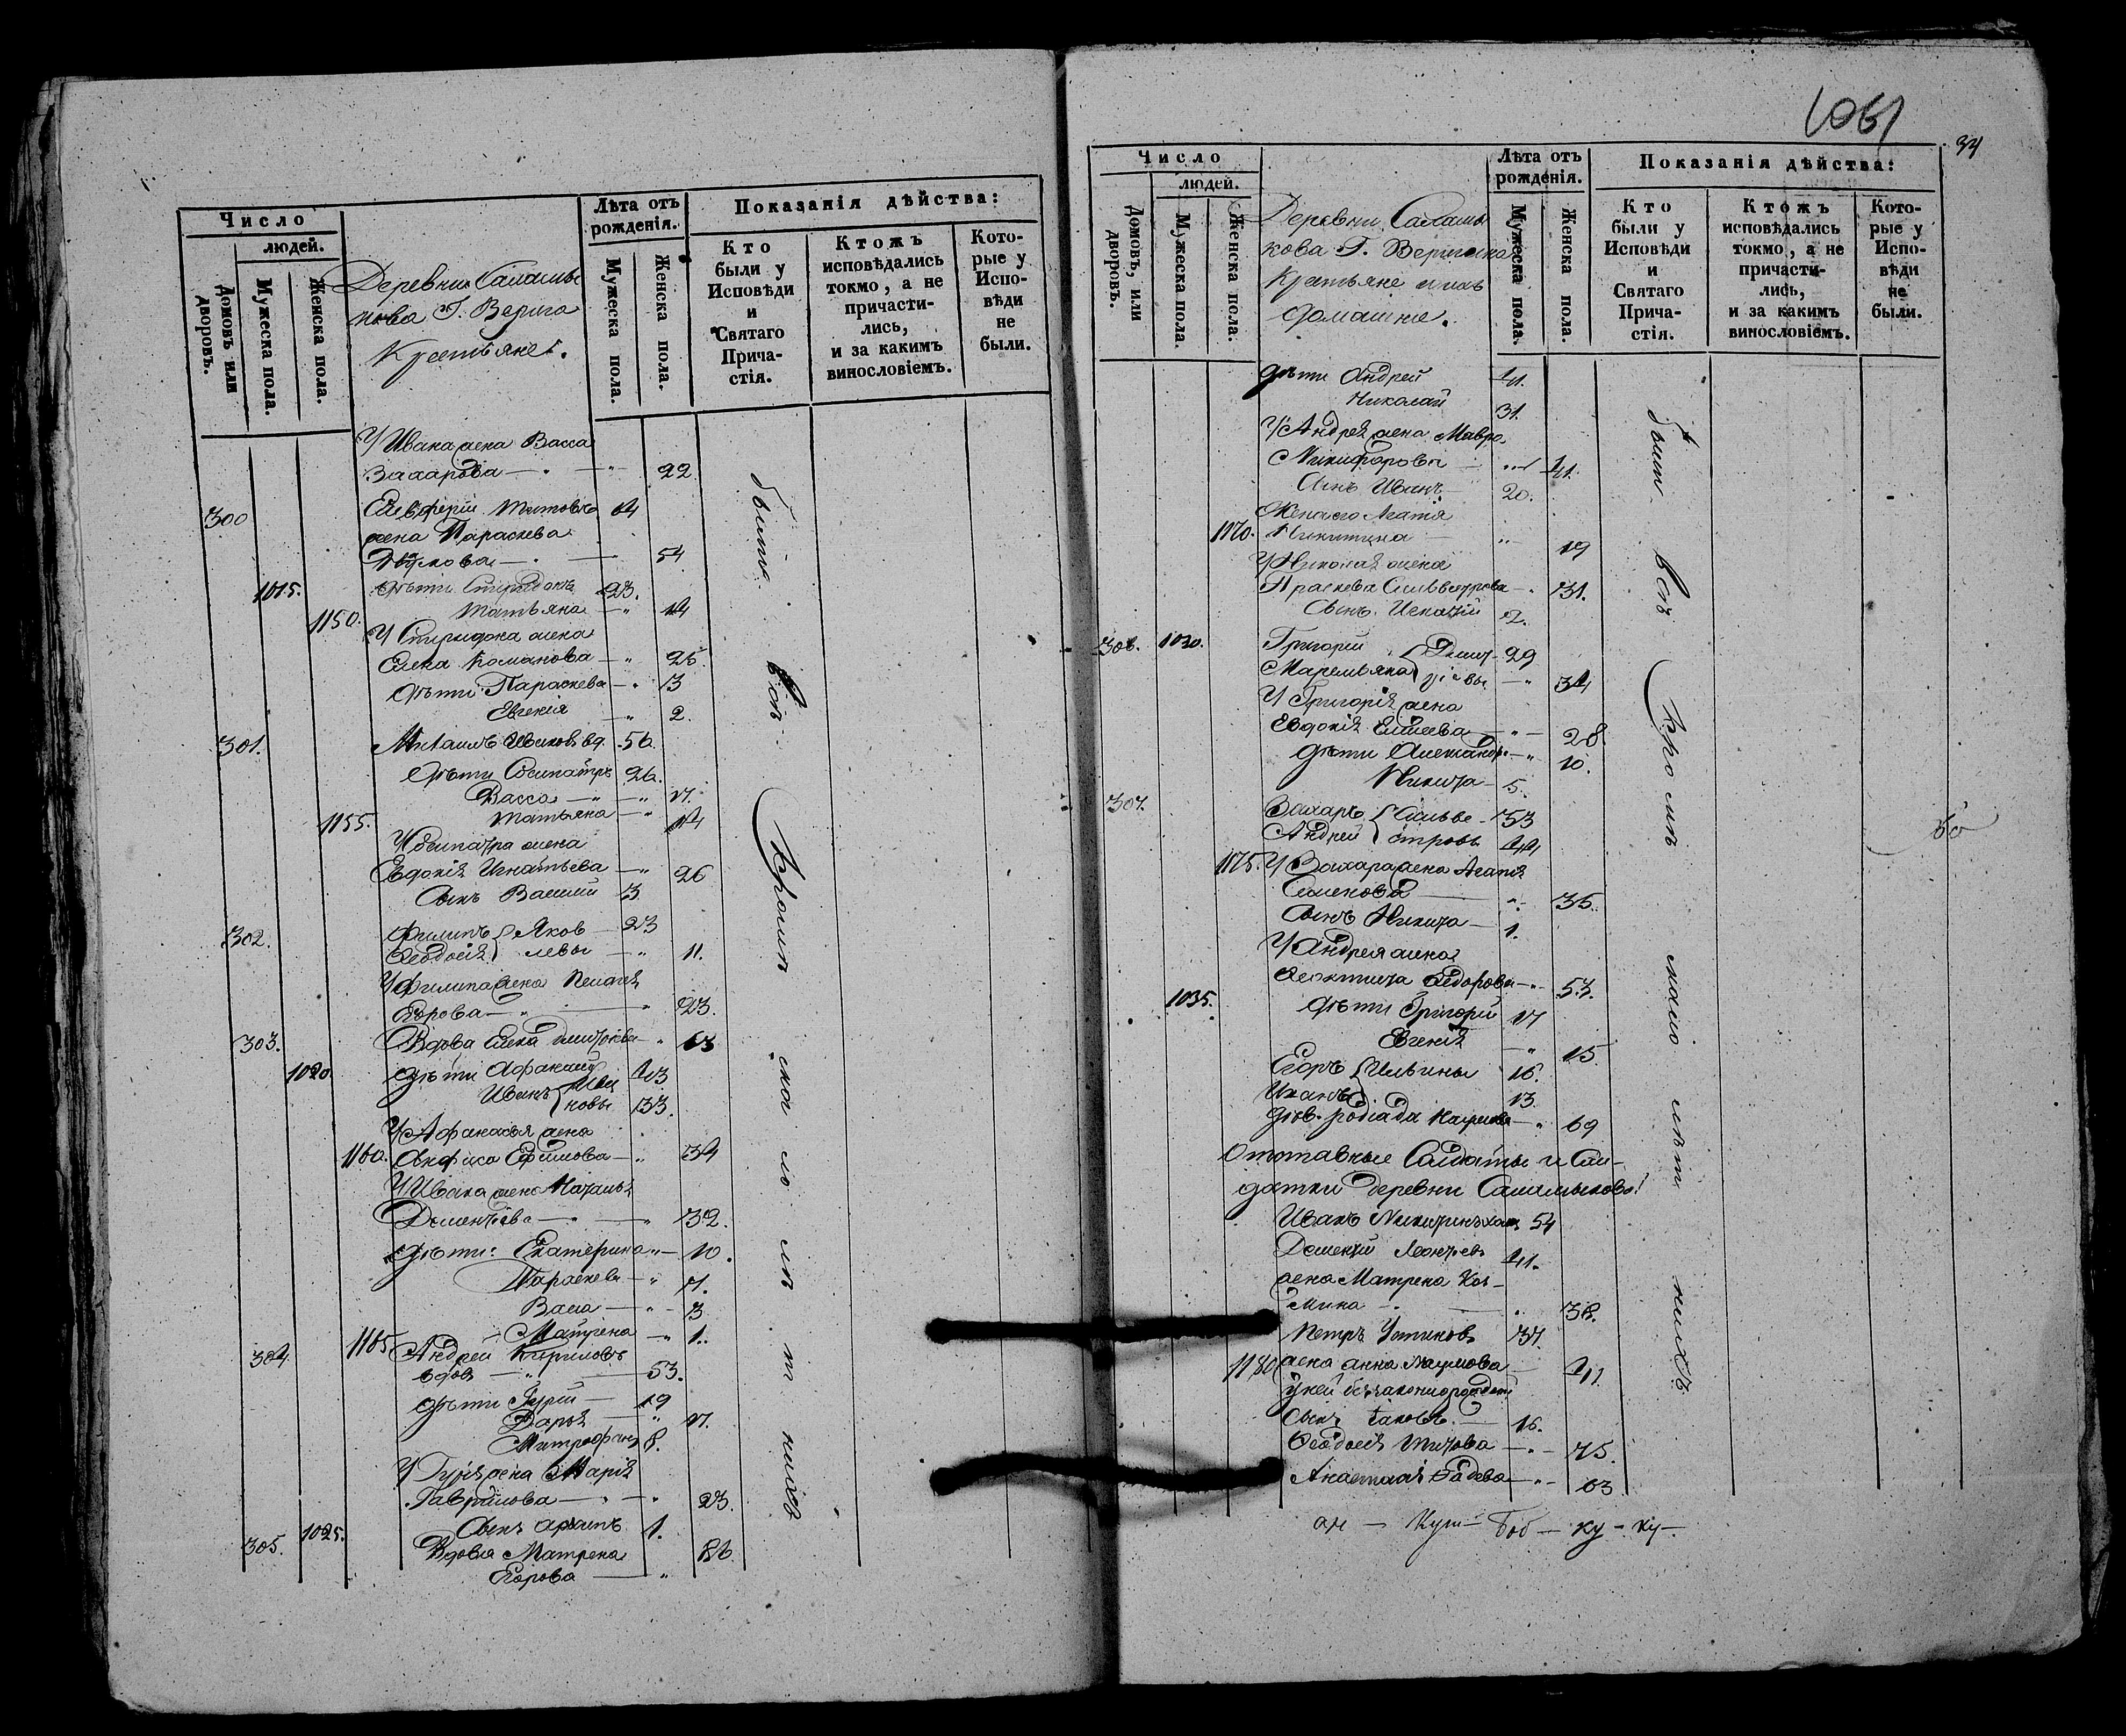 Число
людей.
Домовъ или дворовъ.
Мужеска пола.
Женска пола.
Деревни
нова Г. Верига
Крестьяне.
Лѣта отъ рожденія.
Мужеска пола.
Женска пола.
Показанія дѣйства:
Кто были у Исповѣди и Святаго Прича-стія.
Ктожъ исповѣдались токмо, а не причасти-лись, и за какимъ винословіемъ.
Кото-рые у Испо-вѣди не были.
У Ивана жена Васса
Захарова — " — " 22
300 Елевферій Титовъ 64
жена Параскева
54
1015. дѣти Спиридонъ 23.
1150. Татьяна — " 14
У Спиридона жена
Елена Романова — " 25.
дѣти Параскева — " 3
Евгенія — " 2.
301. Михаилъ Ивановъ вд. 56.
дѣти Сосипатръ 26.
Васса — " — " 17.
1155. Татьяна — " 14
У Сосипатра жена
Евдокія Игнатьева — " 26
Сынъ Василій 3
302. Филипъ Яков 23
Ѳеодосія левы — " 11.
У Филипа жена Пелагія
Егорова — " — " 23.
303. Вдова Елена — " 63
1020. дѣти Афанасій 43
Иванъ Ива новы 33.
У Афанасья жена
1160. Анфиса Ефимова — " 34
У Ивана жена Наталья
Дементіева — " — " 32.
дѣти: Екатерина " — 10.
Параскева — " 7.
Васса — " — 3
1165 Матрена — " 1.
304. Андрей Кириловъ
вдов — " — 53.
дѣти Гурій — 19
Дарья — " 17.
Митрофанъ 8.
У Гурія жена Марія
Гаврилова — " — " 23.
1025. Сынъ 1.
305. Вдова Матрена 86.
Егорова — "
были всѣ кромѣ малолѣтнихъ
1061
34
Число
людей.
Домовъ, или дворовъ.
Мужеска пола.
Женска пола.
Деревни Саламы
кова Г. Веригина
Крестьяне и ихъ
домашніе.
Лѣта отъ рожденія.
Мужеска пола.
Женска пола.
Показанія дѣйства:
Кто были у Исповѣди и Святаго Прича-стія.
Ктожъ исповѣдались токмо, а не причасти-лись, и за какимъ винословіемъ.
Кото-рые у Испо-вѣди не были.
дѣти Андрей 41.
Николай 31.
У Андрея жена Мавра
Никифорова — " 41.
Сынъ Иванъ — 20.
Жена его Агатія
1170. Никитина — " 19
У Николая жена
Праскева Сильвестрова — " 31.
Сынъ 2.
306. 1030. Григорій 29
Маремьяна — " 34
У Григорія жена
Евдокія — " — 28.
дѣти Александра — " 10.
Никита — 5.
307. Захаръ Сильве 53
Андрей стровы 44
1175. У Захара жена Агатія
Семенова — " 36.
Сынъ Никита — 1.
У Андрея жена
Ѳеоктиста Ѳедорова — " 53.
1035. дѣти Григорій 17
Евгенія — " 15.
Егоръ Ильины 16.
Иванъ 13.
— " 69
Отставные Солдаты и Сол-
датки деревни Саламыкова:
Иванъ Никитинъ 54
Дементій Леонтьевъ 41.
жена Матрена Коз-
мина — " — " 38.
Петръ Устиновъ 37.
1180 жена Анна Наумова — 41.
у ней беззаконнорожден
Сынъ Іаковъ — 16.
Ѳеодосія Титова — " — 75.
Анастасія — " — 63
были всѣ кромѣ малолѣтнихъ